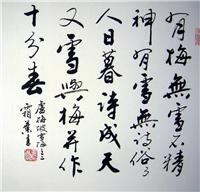 有梅無雪不精
神有雪無詩俗了
人日暮詩成天
又雪與梅并作
十分春
盧梅坡雪梅之二
霜葉書